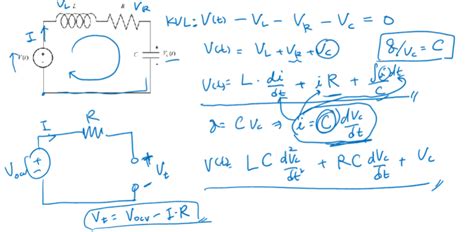 V_L L R V_R
KVL: V(t) - V_L - V_R - V_C = 0
I
V(t) = V_L + V_R + V_C
q/V_C = C
V(t) = L · di/dt + iR + ∫i dt/C
q = C V_C ⇒ i = C dV_C/dt
I R
V(t) = LC d²V_C/dt² + RC dV_C/dt + V_C
V_ocv + - + - V_t
V_t = V_ocv - I·R